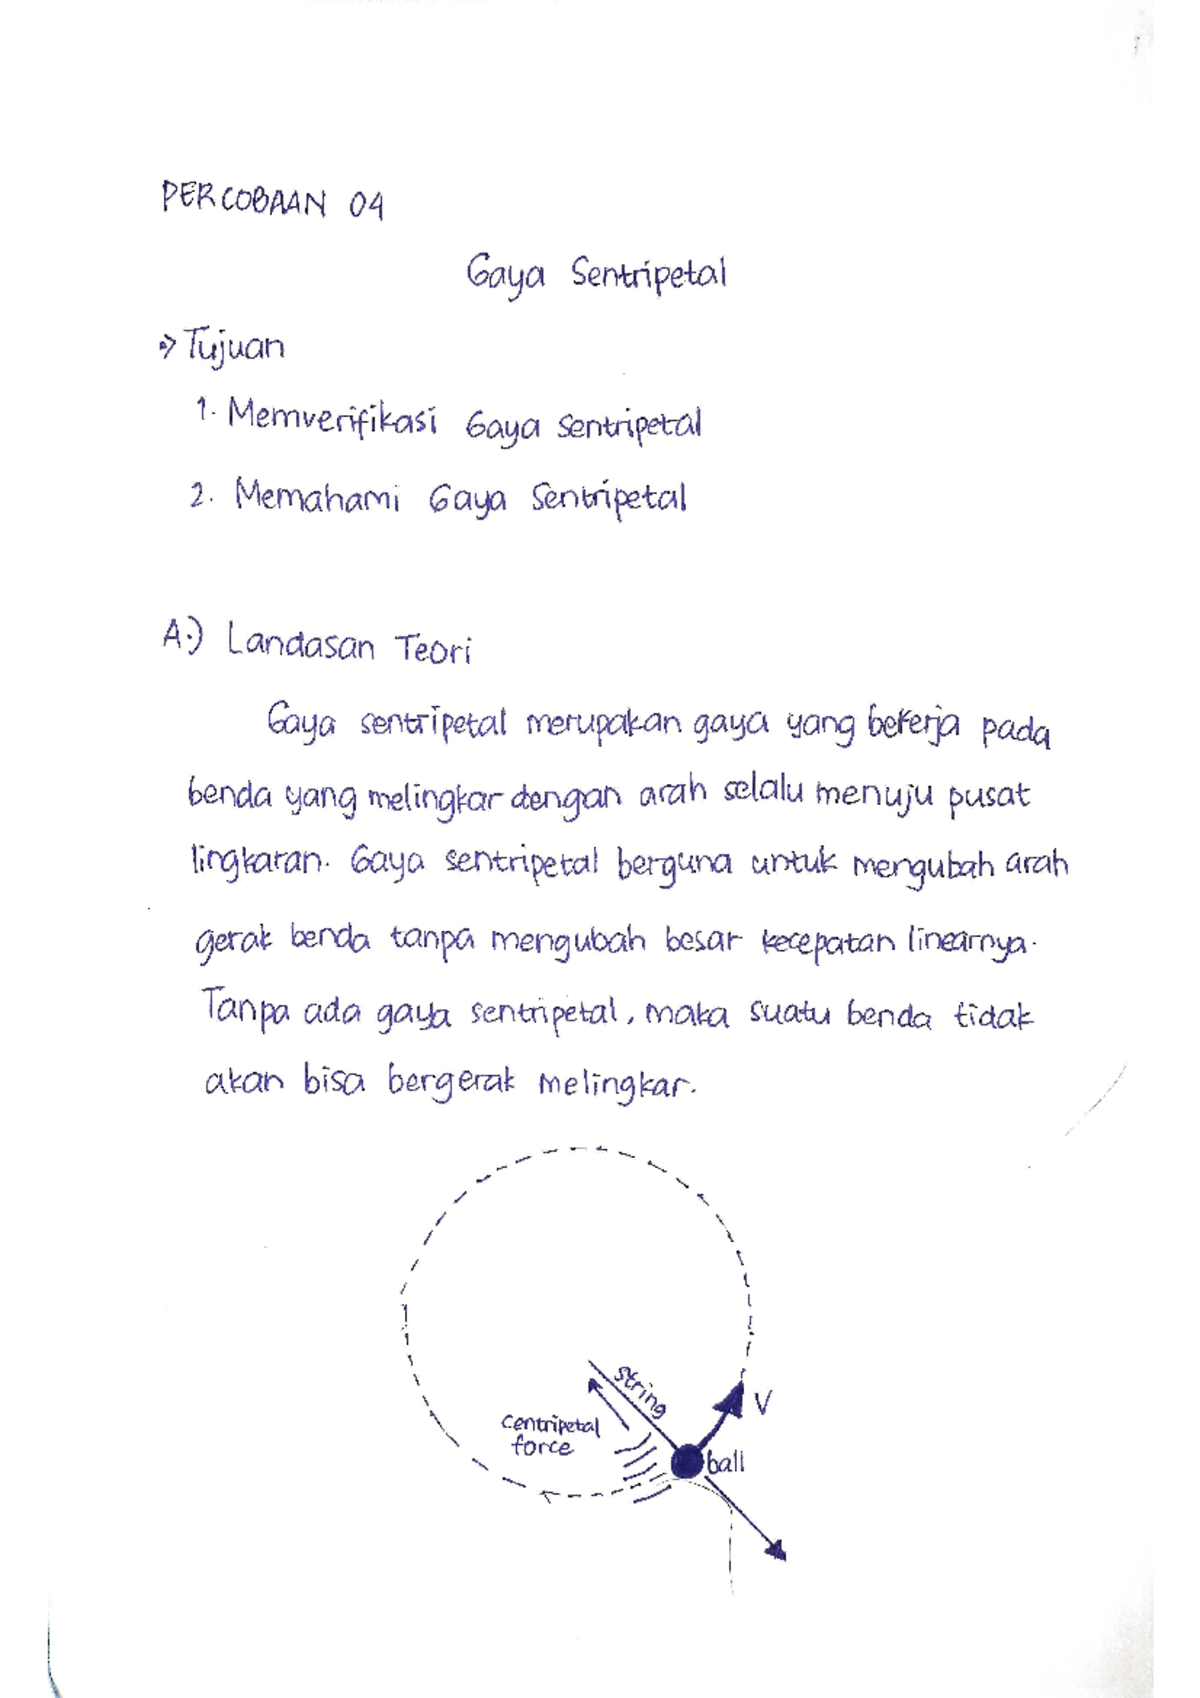 PERCOBAAN 04
Gaya Sentripetal
=> Tujuan
1. Memverifikasi Gaya Sentripetal
2. Memahami Gaya Sentripetal
A.) Landasan Teori
Gaya sentripetal merupakan gaya yang bekerja pada
benda yang melingkar dengan arah selalu menuju pusat
lingkaran. Gaya sentripetal berguna untuk mengubah arah
gerak benda tanpa mengubah besar kecepatan linearnya.
Tanpa ada gaya sentripetal, maka suatu benda tidak
akan bisa bergerak melingkar.
string
V
Centripetal
force
ball